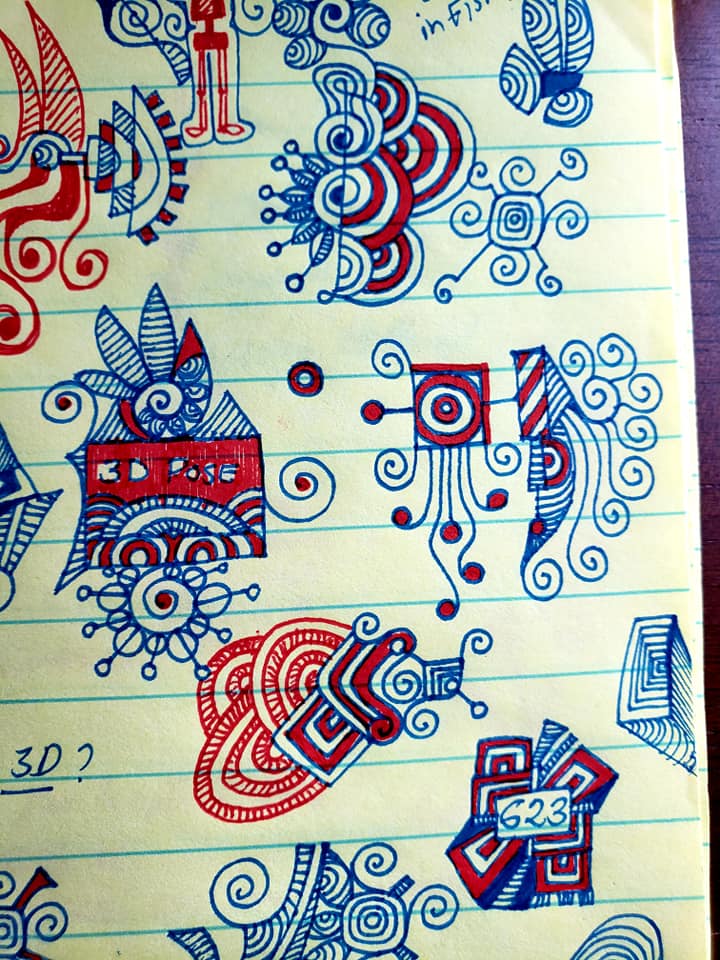 in
3D POSE
3D?
623